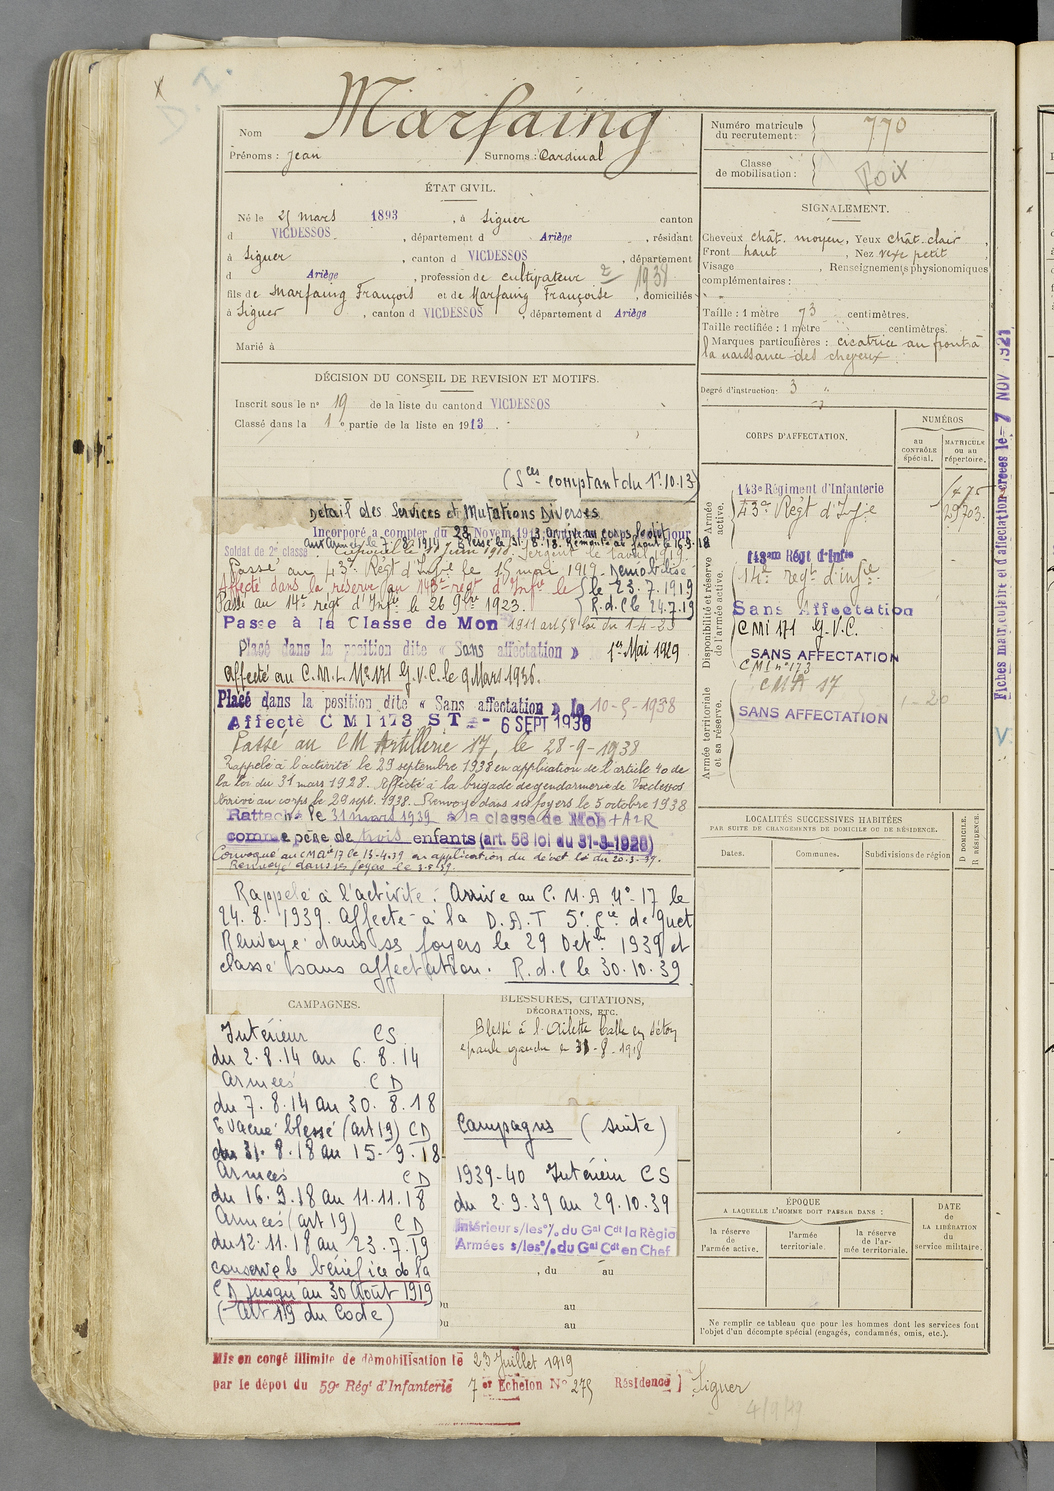 D. I.
Nom Marfaing
Prénoms : Jean Surnoms : Cardinal
Numéro matricule du recrutement : 770
Classe de mobilisation :
Foix
ÉTAT CIVIL.
Né le 25 mars 1893, à Siguer canton
d VICDESSOS, département d Ariège, résidant
à Siguer, canton d VICDESSOS, département
d Ariège, profession de cultivateur 1938
fils de Marfaing François et de Marfaing Françoise, domiciliés
à Siguer, canton d VICDESSOS, département d Ariège
Marié à
SIGNALEMENT.
Cheveux chât. moyen, Yeux chât. clair
Front haut, Nez vexe petit
Visage, Renseignements physionomiques
complémentaires :
Taille : 1 mètre 73 centimètres.
Taille rectifiée : 1 mètre centimètres.
Marques particulières : cicatrice au front à
la naissance des cheveux
Degré d'instruction : 3
DÉCISION DU CONSEIL DE REVISION ET MOTIFS.
Inscrit sous le no 19 de la liste du canton d VICDESSOS
Classé dans la 1e partie de la liste en 1913.
(Sces comptant du 1.10.13)
Détail des Services et Mutations Diverses
Incorporé à compter du 28 Novem 1913. Arrivé au corps le dit jour
aux Armées le 7.8.1914. Blessé le 31.8.18. Remonté au front le 16.9.18
Soldat de 2e classe
Passé au 43e Régt d'Infie le 15 mai 1919. Démobilisé
Affecté dans la réserve au 143e régt d'Infie le le 23.7.1919
Passé au 14e régt d'Infie le 26 9bre 1923. R.d.C le 24.7.19
Passé à la Classe de Mon 1911 art 58 loi du 1-4-23
Placé dans la position dite « Sans affectation » 1er Mai 1929
Affecté au C.M.I. No 171 G.V.C. le 9 Mars 1936.
Placé dans la position dite « Sans affectation » le 10-5-1938
Affecté CMI 173 ST - 6 SEPT 1938
Passé au CM Artillerie 17, le 28-9-1938
Rappelé à l'activité le 29 septembre 1938 en application de l'article 40 de
la loi du 31 mars 1928. Affecté à la brigade de gendarmerie de Vicdessos
Arrivé au corps le 29 sept. 1938. Renvoyé dans ses foyers le 5 octobre 1938
Rattaché le 31 mars 1939 à la classe de Mob
comme père de trois enfants (art. 58 loi du 31-3-1928)
Convoqué au CMA 17 le 15-4-39 en application du décret loi du 20-3-39.
Renvoyé dans ses foyers le
Rappelé à l'activité : Arrive au C.M.A No 17 le
24.8.1939. Affecté à la D.A.T 5e Cie de guet
Renvoyé dans ses foyers le 29 Octbre 1939 et
classé sans affectation. R.d.C le 30.10.39
CORPS D'AFFECTATION.
NUMÉROS
au CONTRÔLE spécial.
MATRICULE ou au répertoire.
Armée active.
143e Régiment d'Infanterie
43e Régt d'Infie
Disponibilité et réserve de l'armée active.
143em Régt d'Infie
14e régt d'infie
Sans Affectation
CMI 171 G.V.C.
SANS AFFECTATION
CMI no 173
Armée territoriale et sa réserve.
CMA 17
SANS AFFECTATION
1-20
Fiches matriculaire et d'affectation créées le 7 NOV 1921
LOCALITÉS SUCCESSIVES HABITÉES
PAR SUITE DE CHANGEMENTS DE DOMICILE OU DE RÉSIDENCE.
Dates.
Communes.
Subdivisions de région
D DOMICILE.
R RÉSIDENCE.
CAMPAGNES.
Intérieur CS
du 2.8.14 au 6.8.14
Armées CD
du 7.8.14 au 30.8.18
Evacué blessé (art 19) CD
du 31.8.18 au 15.9.18
Armées CD
du 16.9.18 au 11.11.18
Armées (art 19) CD
du 12.11.18 au 23.7.19
conserve le bénéfice de la
CD jusqu'au 30 Août 1919
(Art 19 du Code)
BLESSURES, CITATIONS,
DÉCORATIONS, ETC.
Blessé à l'Ailette balle en séton
épaule gauche le 31-8-1918
Campagnes (suite)
1939-40 Intérieur CS
du 2.9.39 au 29.10.39
Intérieur s/les o/. du Gal Cdt la Régio
Armées s/les o/. du Gal Cdt en Chef
, du au
Du au
Du au
ÉPOQUE
A LAQUELLE L'HOMME DOIT PASSER DANS :
la réserve de l'armée active.
l'armée territoriale.
la réserve de l'armée territoriale.
DATE de LA LIBÉRATION du service militaire.
Ne remplir ce tableau que pour les hommes dont les services font
l'objet d'un décompte spécial (engagés, condamnés, omis, etc.).
Mis en congé illimité de démobilisation le 23 Juillet 1919
par le dépôt du 59e Régt d'Infanterie 7e Echelon No 275 Résidence Siguer